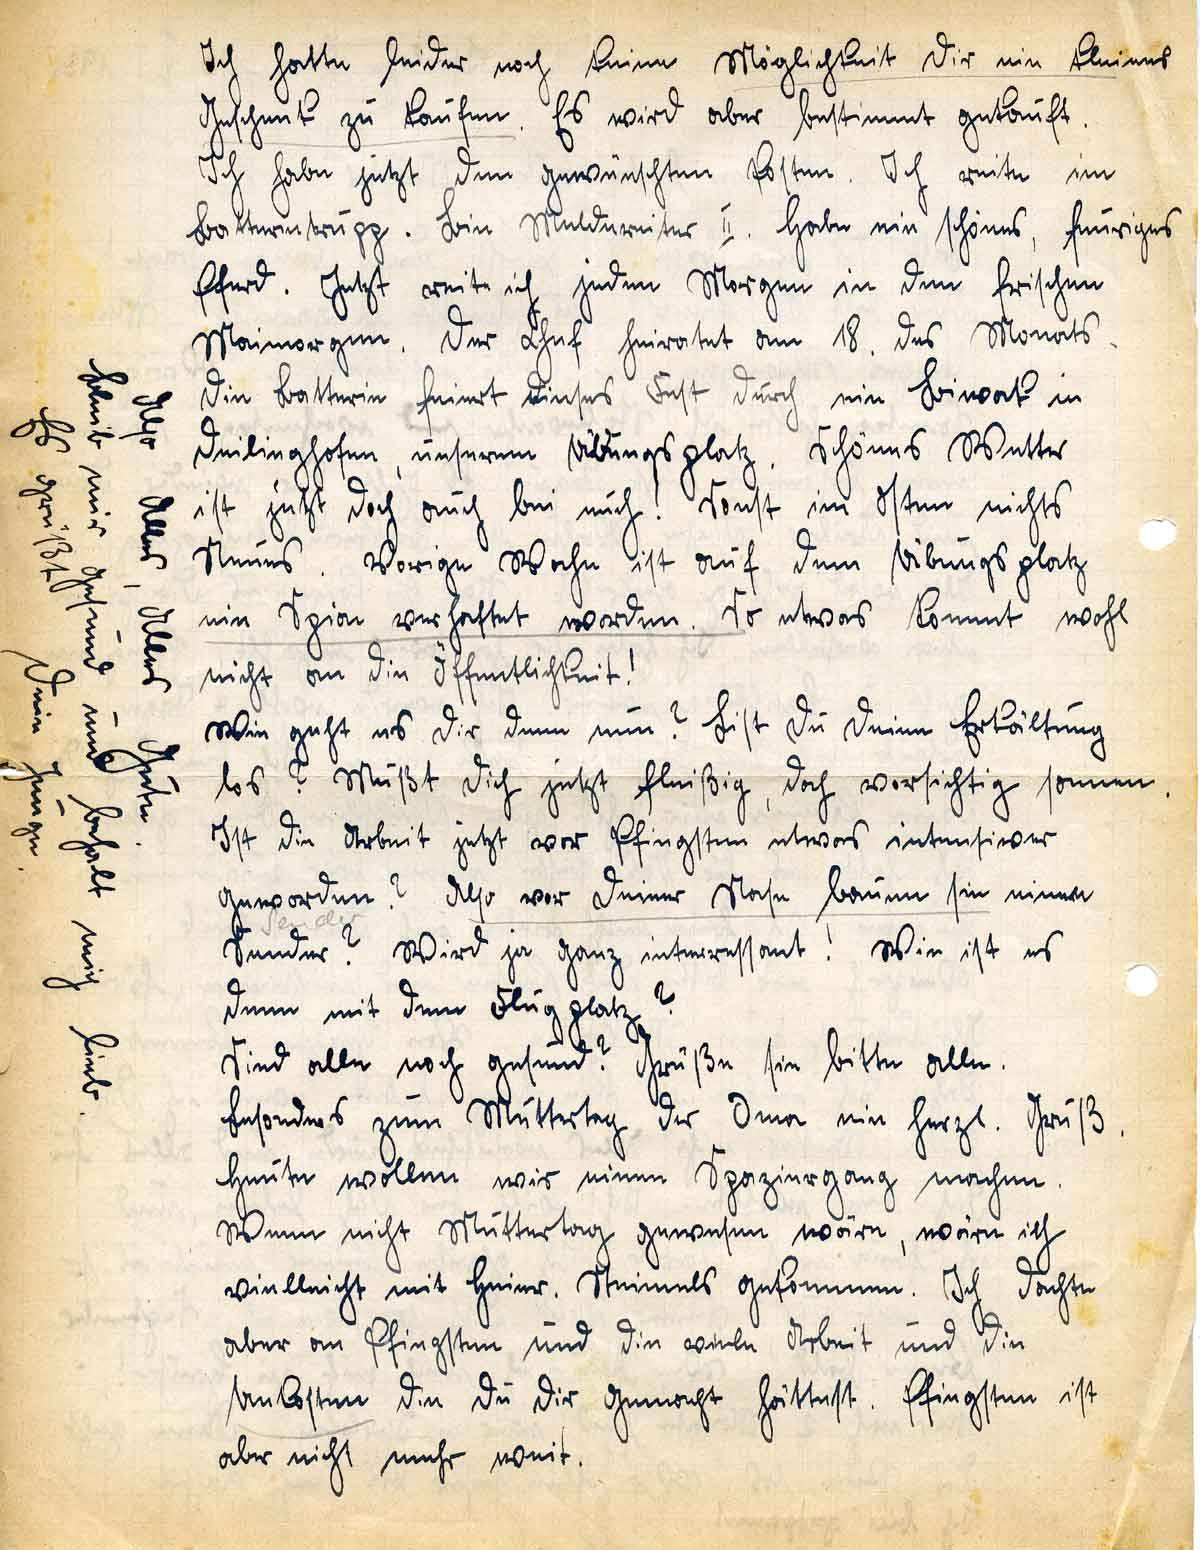 Ich hatte leider noch keine Möglichkeit Dir ein kleines
Geschenk zu kaufen. Es wird aber bestimmt gekauft.
Ich habe jetzt den gewünschten Posten. Ich reite im
Batterietrupp. Bin Meldereiter II. Habe ein schönes, feuriges
Pferd. Jetzt reite ich jeden Morgen in den frischen
Maimorgen. Der Chef heiratet am 18. des Monats.
Die Batterie feiert dieses Fest durch ein Biwak in
Deilinghofen, unserem Übungsplatz. Schönes Wetter
ist jetzt doch auch bei euch! Sonst im Osten nichts
Neues. Vorige Woche ist auf dem Übungsplatz
ein Spion verhaftet worden. So etwas kommt wohl
nicht an die Öffentlichkeit!
Wie geht es Dir denn nun? Bist Du Deine Erkältung
los? Mußt Dich jetzt fleißig, doch vorsichtig sonnen.
Ist die Arbeit jetzt vor Pfingsten etwas intensiver
geworden? Also vor Deiner Nase bauen sie einen
Sender
Sender? Wird ja ganz interressant! Wie ist es
denn mit dem Flugplatz?
Sind alle noch gesund? Grüße sie bitte alle.
Besonders zum Muttertag der Oma ein herzl. Gruß.
Heute wollen wir einen Spaziergang machen.
Wenn nicht Muttertag gewesen wäre, wäre ich
vielleicht mit Heier. Steimels gekommen. Ich dachte
aber an Pfingsten und die viele Arbeit und die
Unkosten die Du Dir gemacht hättest. Pfingsten ist
aber nicht mehr weit.
Also Alles, Alles Gute.
Bleib mir gesund und behalt mich lieb.
Es grüßt
Dein Junge.